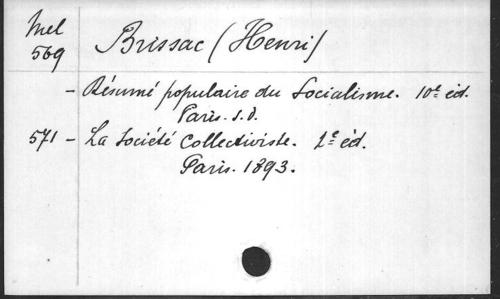 Mel
569 Brissac (Henri)
- Résumé populaire du Socialisme. 10e éd.
Paris. s.d.
571 - La Société Collectiviste. 2e éd.
Paris. 1893.